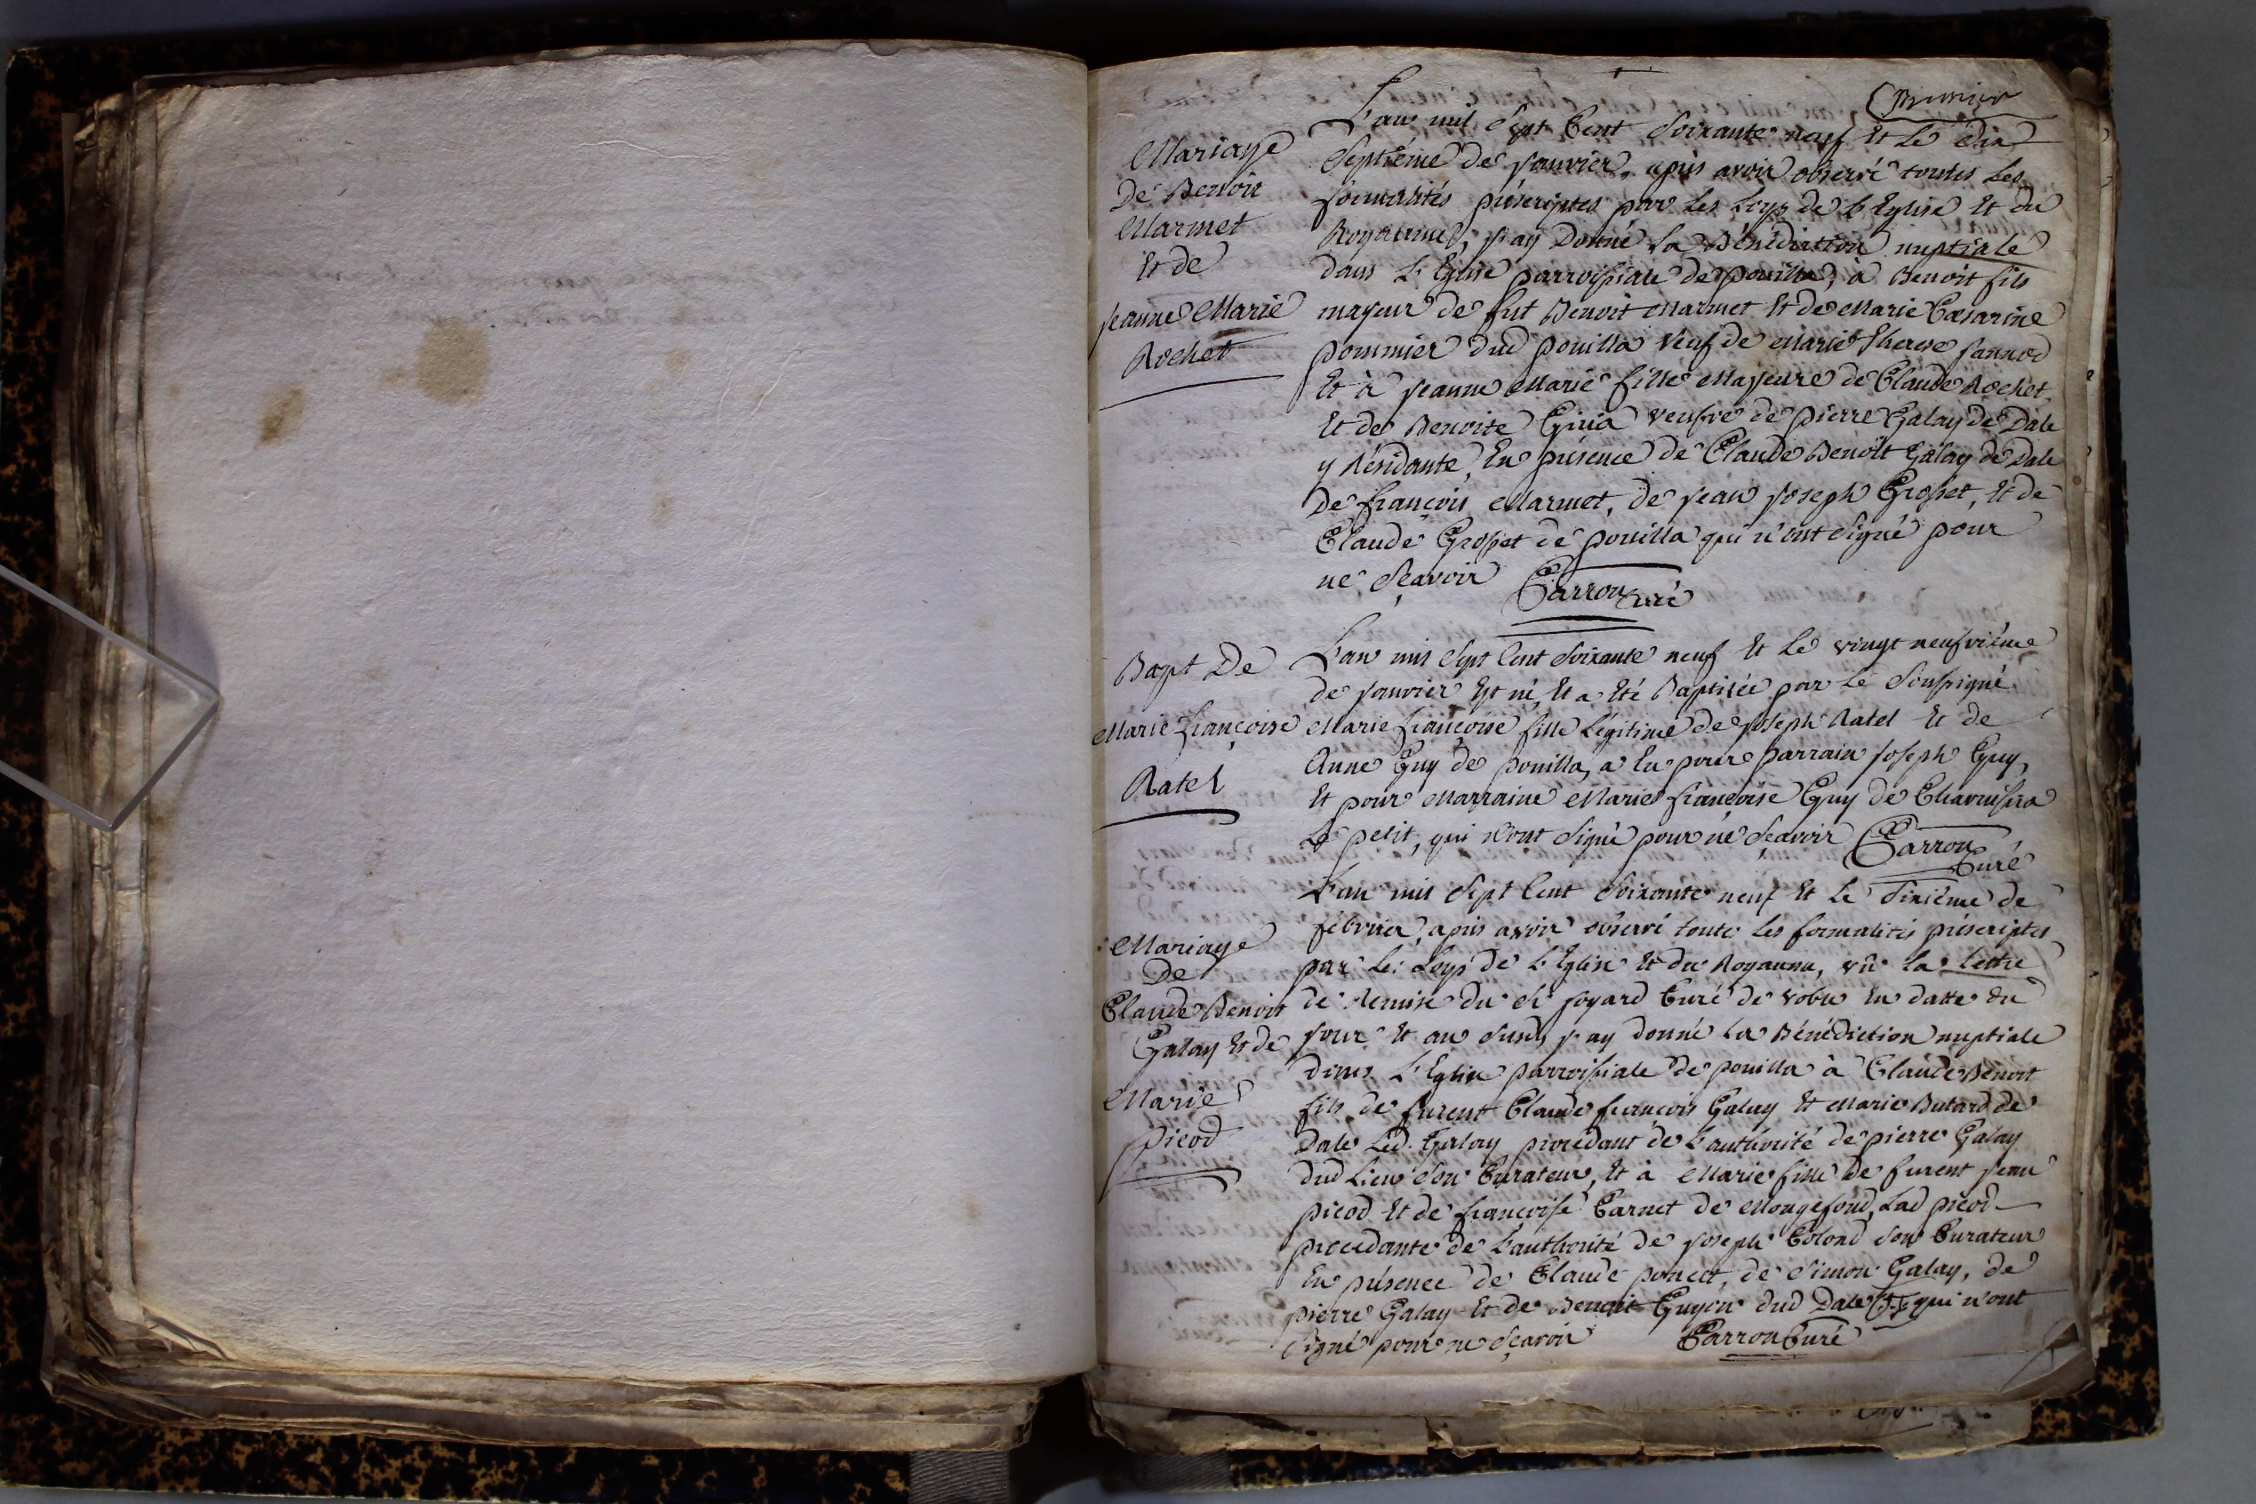 Brunier
Mariage
De Benoit
Marmet
Et de
Jeanne Marie
Rochet
L'an mil Sept Cent Soixante neuf Et Le Dix
Septieme de Janvier, après avoir observé toutes Les
formalités préscriptes par Les Loys de L'Eglise Et du
Royaume, j'ay Donné La Bénédiction nuptiale
dans L'Eglise parroissiale de pouilla, à Benoit fils
majeur de fut Benoit Marmet Et de Marie Cæsarine
pommier dud pouilla veuf de Marie Therese Jannod
Et à Jeanne Marie fille Majeure de Claude Rochet
Et de Benoite veufve de pierre Galay de Dale
y Résidante, En présence de Claude Benoit Galay de Dale
De françois Marmet, de Jean Joseph Grosset, Et de
Claude Grosset de pouilla qui n'ont Signé pour
ne Sçavoir Carron Curé
Bapt De
Marie françoise
Ratel
L'an mil Sept Cent Soixante neuf Et Le vingt neufvième
de Janvier Est né, Et a Eté Baptisée par Le Soussigné
Marie françoise fille Légitime de Joseph Ratel Et de
Anne Guy de pouilla, a Eu pour parrain Joseph Guy,
Et pour Marraine Marie françoise Guy de
Le petit, qui n'ont Signé pour ne Sçavoir Carron
Curé
Mariage
De
Claude Benoit
Galay Et de
Marie
picod
L'an mil Sept Cent Soixante neuf Et Le Sixième de
février, après avoir observé toute Les formalités préscriptes
par Les Loys de L'Eglise Et du Royaume, vû la Lettre
de Remise du Sr Curé de En datte du
Jour Et an Susd, j'ay donné La Bénédiction nuptiale
dans L'Eglise parroissiale de pouilla à Claude Benoit
fils de furent Claude françois Galay Et Marie de
Dale Led. Galay procédant de L'authorité de pierre Galay
dud Lieu Son Curateur, Et à Marie fille de furent Jean
picod Et de françoise Carnet de Mongefond, Lad picod
procedante de L'authorité de Joseph Son Curateur
En présence de Claude poncet, de Simon Galay, de
pierre Galay Et de Benoit dud Dale qui n'ont
Signé pour ne Sçavoir Carron Curé